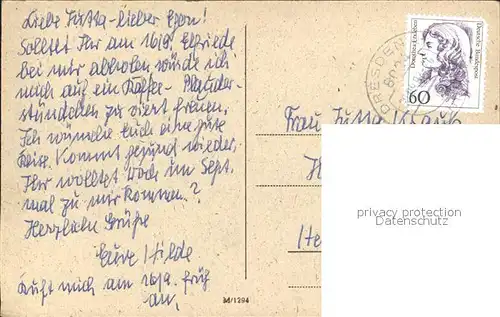 Liebe Jutta - lieber Egon!
Solltet Ihr am 16/9. Elfriede
bei mir abholen würde ich
mich auf ein Kaffee-Plauder-
stündchen zu viert freuen.
Ich wünsche Euch eine gute
Reise. Kommt gesund wieder.
Ihr wolltet doch im Sept.
mal zu mir kommen?
Herzliche Grüße
Eure Hilde
Ruft mich am 16/9. früh
an.
M/1294
DRESDEN
Dorothea Erxleben
Deutsche Bundespost
60
Frau Jutta
privacy protection
Datenschutz